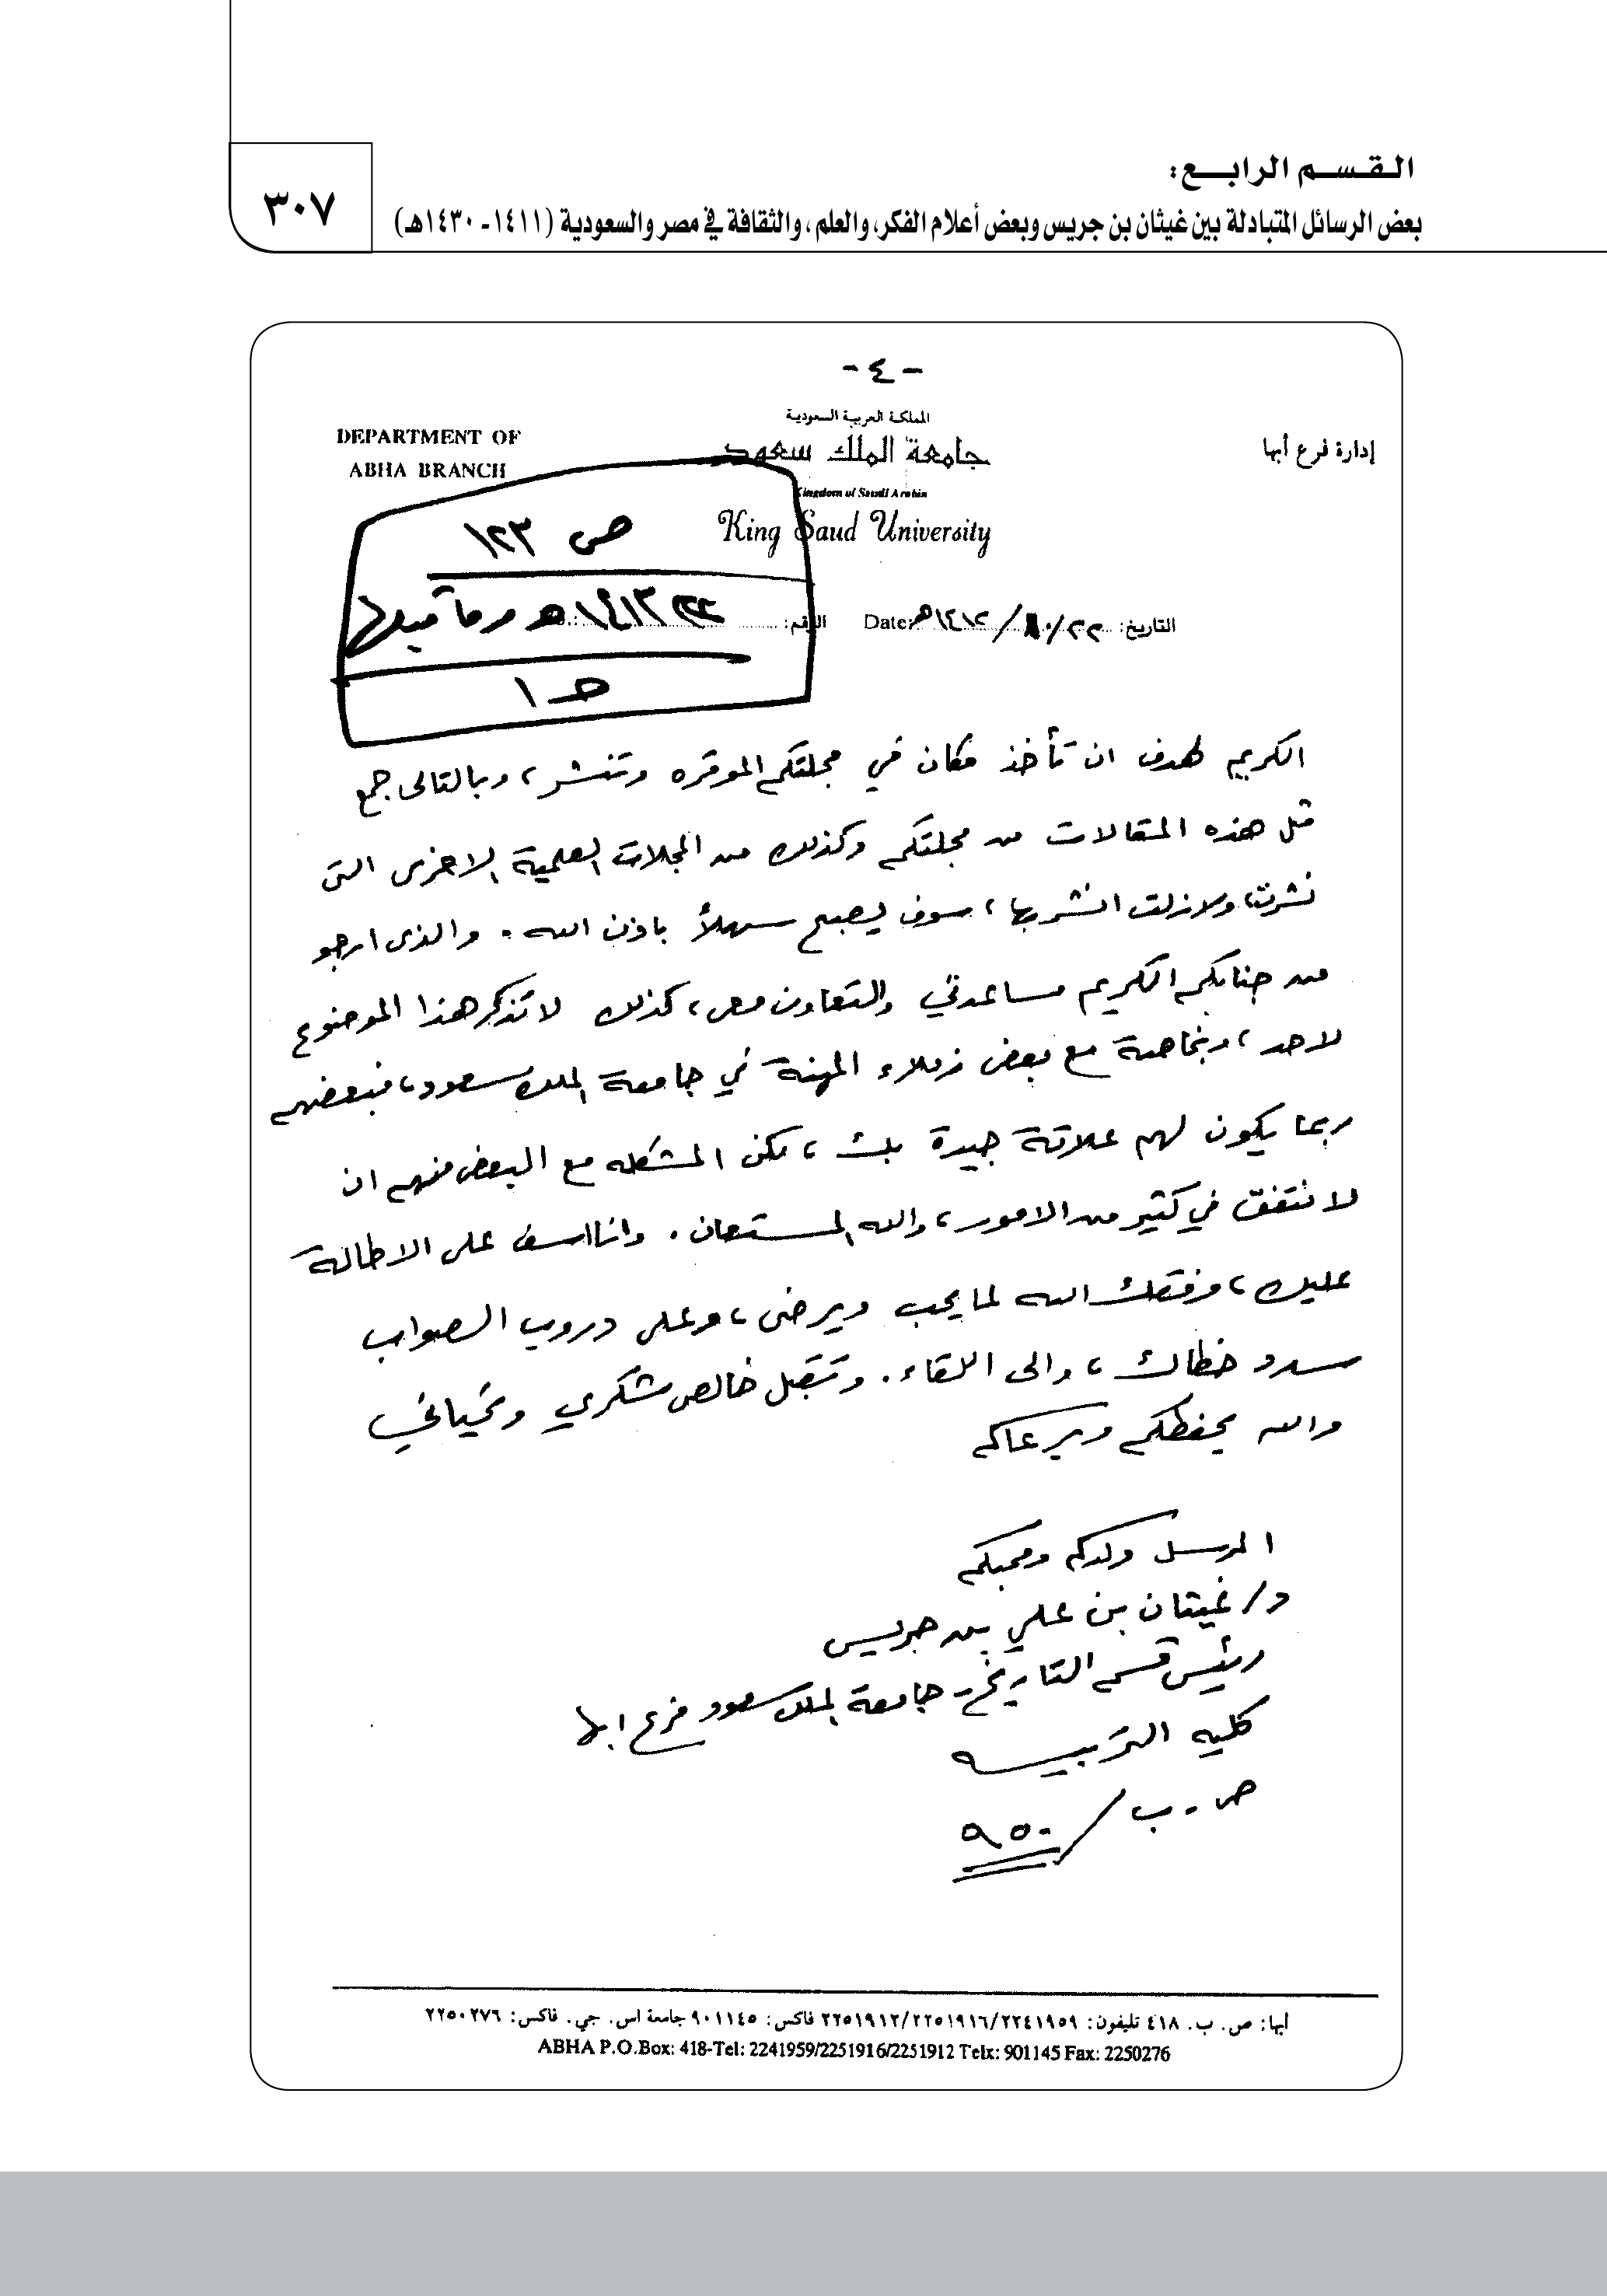 القسم الرابع:
بعض الرسائل المتبادلة بين غيثان بن جريس وبعض أعلام الفكر، والعلم، والثقافة في مصر والسعودية (١٤١١ـ ١٤٣٠هـ)
٣٠٧
- ٤ -
المملكة العربية السعودية
جامعة الملك سعود
Kingdom of Saudi Arabia
King Saud University
إدارة فرع أبها
DEPARTMENT OF
ABHA BRANCH
ص ١٢٣
١٤١٣هـ وما قبلها
حـ ١
الرقم:
التاريخ: ٢٢/١٠/١٤١٢هـ Date:
الكريم لهدف ان تأخذ مكان في مجلتكم الموقره وتنشر، وبالتالى جمع
مثل هذه المقالات من مجلتكم وكذلك من المجلات العلمية الاخرى التى
نشرت ولازلت انشر بها، سوف يصبح سهلاً باذن الله. والذى ارجو
من جنابكم الكريم مساعدتي والتعاون معى، كذلك لا تذكر هذا الموضوع
لاحد، وبخاصة مع بعض زملاء المهنة في جامعة الملك سعود، فبعضهم
ربما يكون لهم علاقة جيدة بك، لكن المشكله مع البعض منهم ان
لا نتفق في كثير من الامور، والله المستعان. وانا اسف على الاطالة
عليك، وفقك الله لما يحب ويرضى، وعلى دروب الصواب
سدد خطاك، والى اللقاء. وتقبل خالص شكري وتحياتي
والله يحفظكم ويرعاكم
المرسل ولدكم ومحبكم
د/ غيثان بن علي بن جريس
رئيس قسم التاريخ - جامعة الملك سعود فرع ابها
كليه التربيه
ص . ب / ٩٥٠
أبها: ص. ب. ٤١٨ تليفون: ٢٢٤١٩٥٩/٢٢٥١٩١٦/٢٢٥١٩١٢ فاكس: ٩٠١١٤٥ جامعة اس. جي. فاكس: ٢٢٥٠٢٧٦
ABHA P.O.Box: 418-Tel: 2241959/2251916/2251912 Telx: 901145 Fax: 2250276